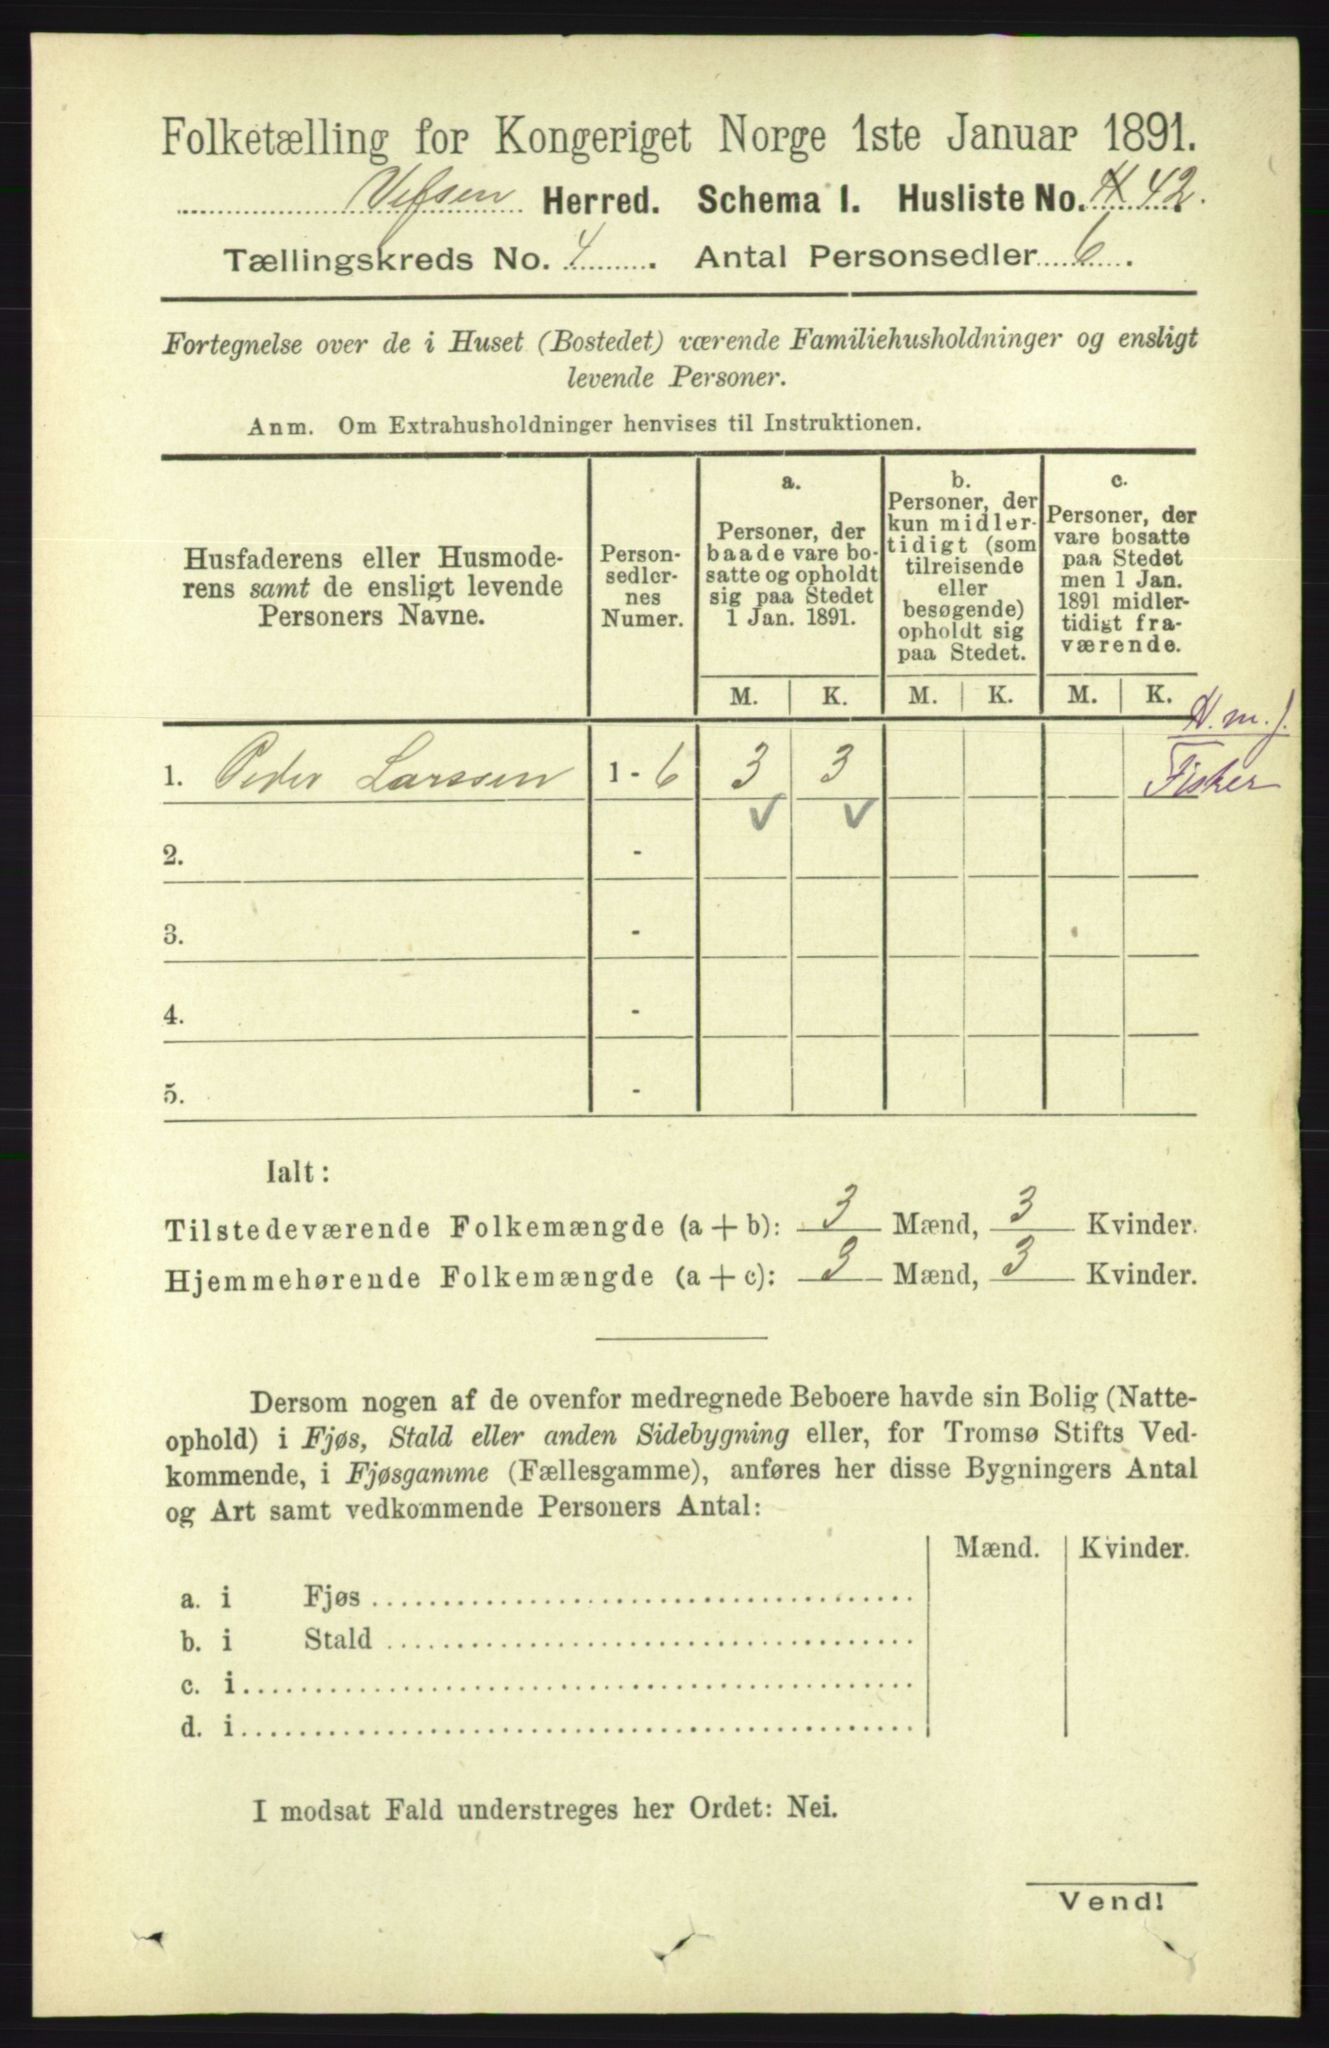 Folketælling for Kongeriget Norge 1ste Januar 1891.
Vefsen Herred. Schema I. Husliste No. 42.
Tællingskreds No. 4. Antal Personsedler 6.
Fortegnelse over de i Huset (Bostedet) værende Familiehusholdninger og ensligt
levende Personer.
Anm. Om Extrahusholdninger henvises til Instruktionen.
Husfaderens eller Husmode-
rens samt de ensligt levende
Personers Navne.
Person-
sedler-
nes
Numer.
a.
Personer, der
baade vare bo-
satte og opholdt
sig paa Stedet
1 Jan. 1891.
b.
Personer, der
kun midler-
tidigt (som
tilreisende
eller
besøgende)
opholdt sig
paa Stedet.
c.
Personer, der
vare bosatte
paa Stedet
men 1 Jan.
1891 midler-
tidigt fra-
værende.
M. K. M. K. M. K.
H. m. j.
1. Peder Larssen 1 - 6 3 3 Fisker
2. -
3. -
4. -
5. -
Ialt:
Tilstedeværende Folkemængde (a + b): 3 Mænd, 3 Kvinder.
Hjemmehørende Folkemængde (a + c): 3 Mænd, 3 Kvinder.
Dersom nogen af de ovenfor medregnede Beboere havde sin Bolig (Natte-
ophold) i Fjøs, Stald eller anden Sidebygning eller, for Tromsø Stifts Ved-
kommende, i Fjøsgamme (Fællesgamme), anføres her disse Bygningers Antal
og Art samt vedkommende Personers Antal:
Mænd. Kvinder.
a. i Fjøs
b. i Stald
c. i
d. i
I modsat Fald understreges her Ordet: Nei.
Vend!